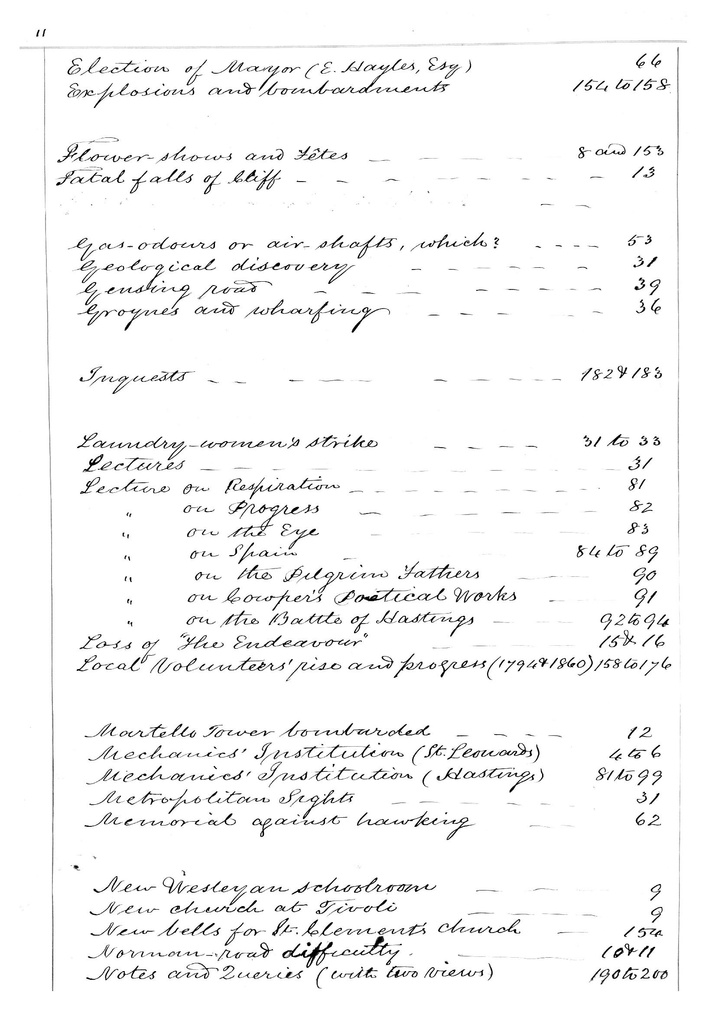 11
Election of Mayor (E. Hayles, Esq) 66
Explosions and bombardments 154 to 158
Flower-shows and Fêtes — — — — 8 and 153
Fatal falls of Cliff - - - - - - - - 13
Gas-odours or air-shafts, which? - - - - 53
Geological discovery - - - - - - 31
Gensing road - - - - - - - - 39
Groynes and wharfing - - - - - 36
Inquests - - - - - - - - - 182 & 183
Laundry-women's strike - - - - 31 to 33
Lectures - - - - - - - - 31
Lecture on Respiration - - - - - - 81
" on Progress - - - - - 82
" on the Eye - - - - 83
" on Spain - - - - 84 to 89
" on the Pilgrim Fathers - - 90
" on Cowper's Poetical Works - - 91
" on the Battle of Hastings - - - 92 to 94
Loss of "The Endeavour" - - - - 15 & 16
Local Volunteers' rise and progress (1794 & 1860) 158 to 176
Martello Tower bombarded - - - - 12
Mechanics' Institution (St. Leonards) 4 to 6
Mechanics' Institution (Hastings) 81 to 99
Metropolitan Sights - - - - - 31
Memorial against hawking - - - 62
New Wesleyan schoolroom - - - 9
New church at Tivoli - - - - 9
New bells for St. Clement's church - - 154
Norman-road difficulty. - - - 10 & 11
Notes and Queries (with two views) 190 to 200